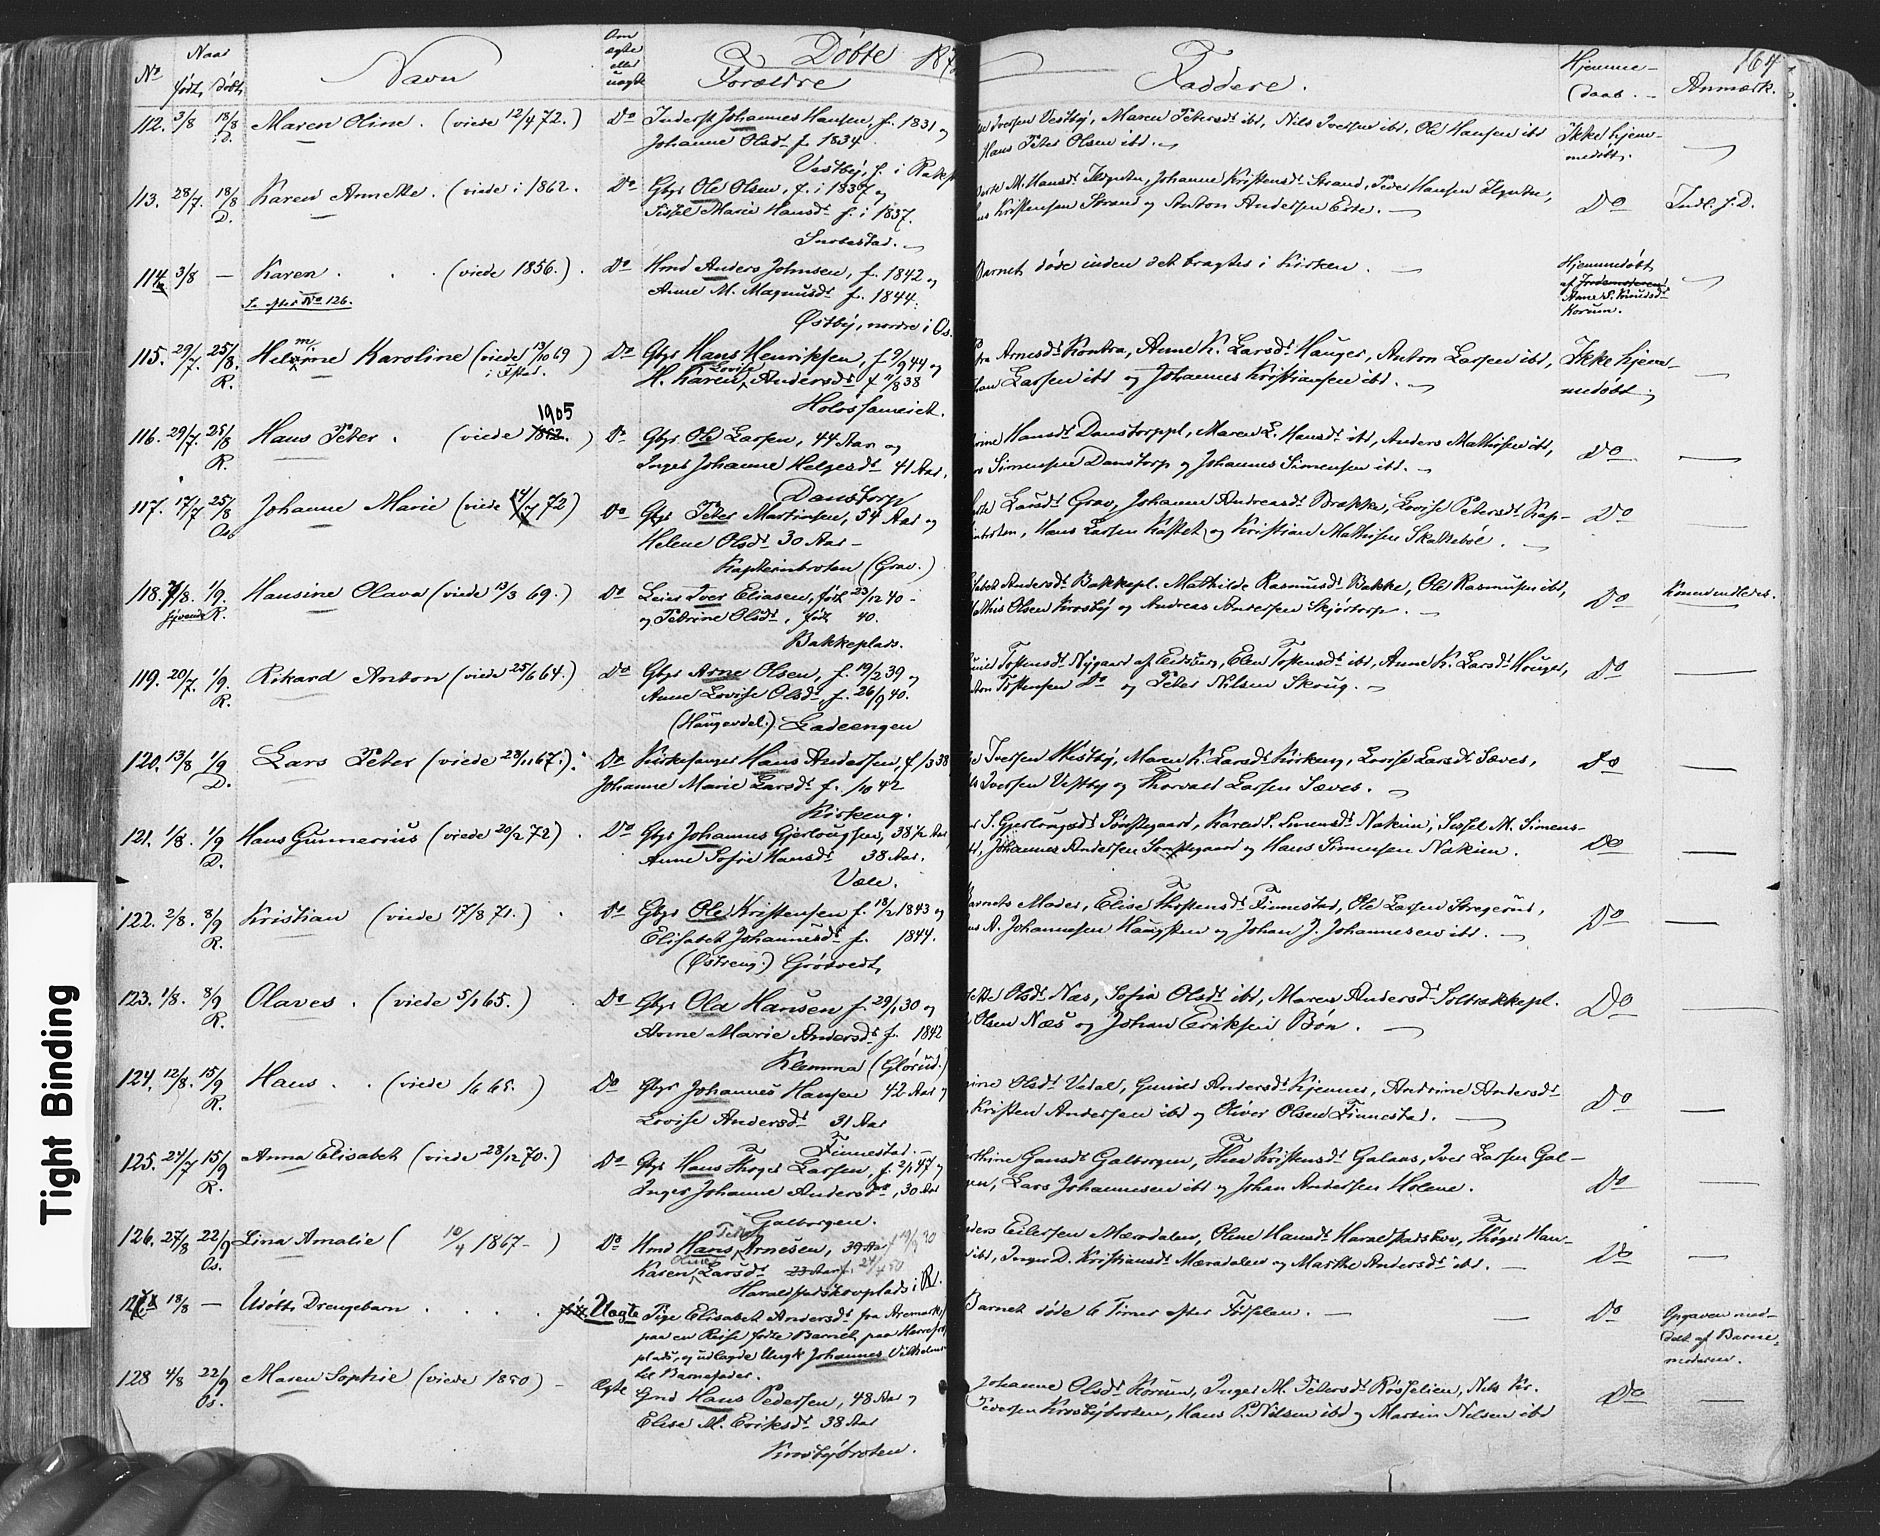 Døbte 187
164
No
Naar
født, døbt,
Navn
Om
ægte
eller
uægte
Forældre
Faddere.
Hjemme-
daab.
Anmærk.
112. 3/8 18/8 D. Maren Oline. (viede 12/4 72.) Do Inderst Johannes Hansen, f. 1831 og
Johanne Olsdr f. 1834
Vestby, f. i Rakk
Iversen Vestby, Maren Petersdr ibd, Nils Iversen ibd, Ole Hansen ibd
Hans Peter Olsen ibd.
Ikke hjem-
medøbt.
113. 28/7. 18/8 D. Karen Annette. (viede i 1862. Do Gbr Ole Olsen, f. i 1837 og
Sissel Marie Hansdr f. i 1837.
M. Hansdr, Johanne Kristensdr Strand, Peder Hansen
Kristensen Strand og Anton Andersen Este.
Do Indl. f. D.
114. 3/8 — Karen. (viede 1856.) Do Hmd Anders Johnsen, f. 1842 og
Se efter No 126.
Anne M. Magnusdr f. 1844.
Østby, nordre i Os.
Barnet døde inden det bragtes i Kirken.
Hjemmedøbt
af Jordemoderen
Anne S. Knudsdr
Korum.
115. 29/7. 25/8. R. Helmine Karoline (viede 13/10 69) Do Gbr Hans Henriksen, f 9/9 44 og
i Id.
H. Karen Lovise Andersdr f 1/8 38
Holossameiet.
Arnesdr Kontra, Anne K. Larsdr Hauger, Anton Larsen ibd,
Larsen ibd og Johannes Kristiansen ibd.
Ikke hjem-
medøbt
1905
116. 29/7. 25/8 R. Hans Peter. (viede 1862.) Do Gbr Ole Larsen, 44 Aar og
Inger Johanne Helgesdr 41 Aar.
Danstorp
Hansdr Danstorppl, Maren L. Hansdr ibd, Anders Mathisen ibd,
Simensen Danstorp og Johannes Simensen ibd.
Do
117. 17/7 25/8 Os. Johanne Marie (viede 14/7 72) Do Gbr Peter Martinsen, 54 Aar og
Helene Olsdr 30 Aar
Kapteinbraaten (Grav.)
Larsdr Grav, Johanne Andreasdr Brække, Lovise Petersdr Kap-
Hans Larsen Kastet og Kristian Mathisen Skattebøl.
Do
118. 7/8. 1/9. R. Hansine Olava (viede 13/3 69.) Do Leier Iver Eliasen, født 23/12 40
syvende
og Petrine Olsdr, født 40.
Bakkeplads.
Andersdr Bakkepl. Mathilde Rasmusdr Bakke, Ole Rasmusen ibd,
Mathis Olsen Krosby og Andreas Andersen Skjørtorp.
Do Konen indledes.
119. 20/7. 1/9. R. Rikard Anton (viede 25/6 64.) Do Gbr Arne Olsen, f. 19/2 39 og
Anne Lovise Olsdr f. 26/9 40.
(Haugerdel.) Ladeengen
Tostensdr Nygaard af Eidsberg, Elen Tostensdr ibd, Anne K. Larsdr Hauger,
Tostensen Do og Peter Nilsen Skoug.
Do
120. 13/8 1/9 D. Lars Peter (viede 28/11 67.) Do Kirkesanger Hans Andersen, f 1/3 38
Johanne Marie Larsdr f. /10 42
Kirkeng.
Iversen Westby, Maren K. Larsdr Kirkeng, Lovise Larsdr Sæves,
Iversen Vestby og Thorvald Larsen Sæves.
Do
121. 1/8. 1/9 D. Hans Gunnerius (viede 20/2 72) Do Gbr Johannes Gjerlougsen, 38 1/2 Aar
Anne Sofie Hansdr 38 Aar.
Væle.
S. Gjerlougsdr Sønstegaard, Karen S. Simensdr Nakim, Sissel M. Simens-
Johannes Andersen Sønstegaard og Hans Simensen Nakim.
Do
122. 2/8. 8/9 R. Kristian (viede 17/8 71.) Do Gbr Ole Kristensen f. 18/2 1843 og
Elisabet Johannesdr f. 1844.
(Østreng.) Grødvedt,
Barnets Moder, Elise Thostensdr Finnestad, Ole Larsen Stregerud,
A. Johannesen Haugsten og Johan J. Johannesen ibd.
Do
123. 1/8. 8/9 R. Olaves. (viede 5/1 65.) Do Gbr Ole Hansen f. 29/1 30 og
Anne Marie Andersdr f. 1842
Klemma (Glørud.)
Olsdr Næs, Sofia Olsdr ibd, Maren Andersdr Soltrækkepl.
Olsen Næs og Johan Eriksen Bøn.
Do
124. 12/8. 15/9 R. Hans. (viede 1/6 65.) Do Gbr Johannes Hansen 42 Aar og
Lovise Andersdr 31 Aar
Finnestad.
Olsdr Vedal, Gunild Andersdr Kjennes, Andrine Andersdr
Kristen Andersen ibd og Oliver Olsen Finnestad.
Do
125. 24/7 15/9 R. Anna Elisabet (viede 28/12 70.) Do Gbr Hans Thøger Larsen, f. 2/1 47 og
Inger Johanne Andersdr, 30 Aar
Galborgen.
Hansdr Galborgen, Thea Kristensdr Galaas, Iver Larsen Gal-
Lars Johannesen ibd og Johan Andersen Holene.
Do
126. 27/8 22/9 Os. Lina Amalie ( 10/4 1867 ) Do Hmd Hans Peter Arnesen, 39 Aar 19/9 30
Karen Oline Larsdr 23 Aar f. 24/7 50
Haraldstadskovplads i R.
Eilertsen Mæradalen, Oline Hansdr Haraldstadskov, Thøger Han-
ibd, Inger D. Kristiansdr Mæradalen og Marthe Andersdr ibd.
Do
127. 18/8 — Udøbt Drengebarn. Uægte Pige Elisabet Andersdr fra Aremark,
paa en Reise fødte Barnet paa
plads, og udlagde Ungk Johannes Vilhelms
til Barnefader.
Barnet døde 6 Timer efter Fødselen.
Do Opgaven med-
delt af Barne-
moderen.
128 4/8 22/9 Os. Maren Sophie (viede 1850) Ægte Gmd Hans Pedersen, 48 Aar og
Elise M. Eriksdr 38 Aar
Krosbybraaten.
Johanne Olsdr Korum, Inger M. Petersdr Røsselien, Nils Kr.
Pedersen Krosbybraaten, Hans P. Nilsen ibd og Martin Nilsen ibd
Do
Tight Binding